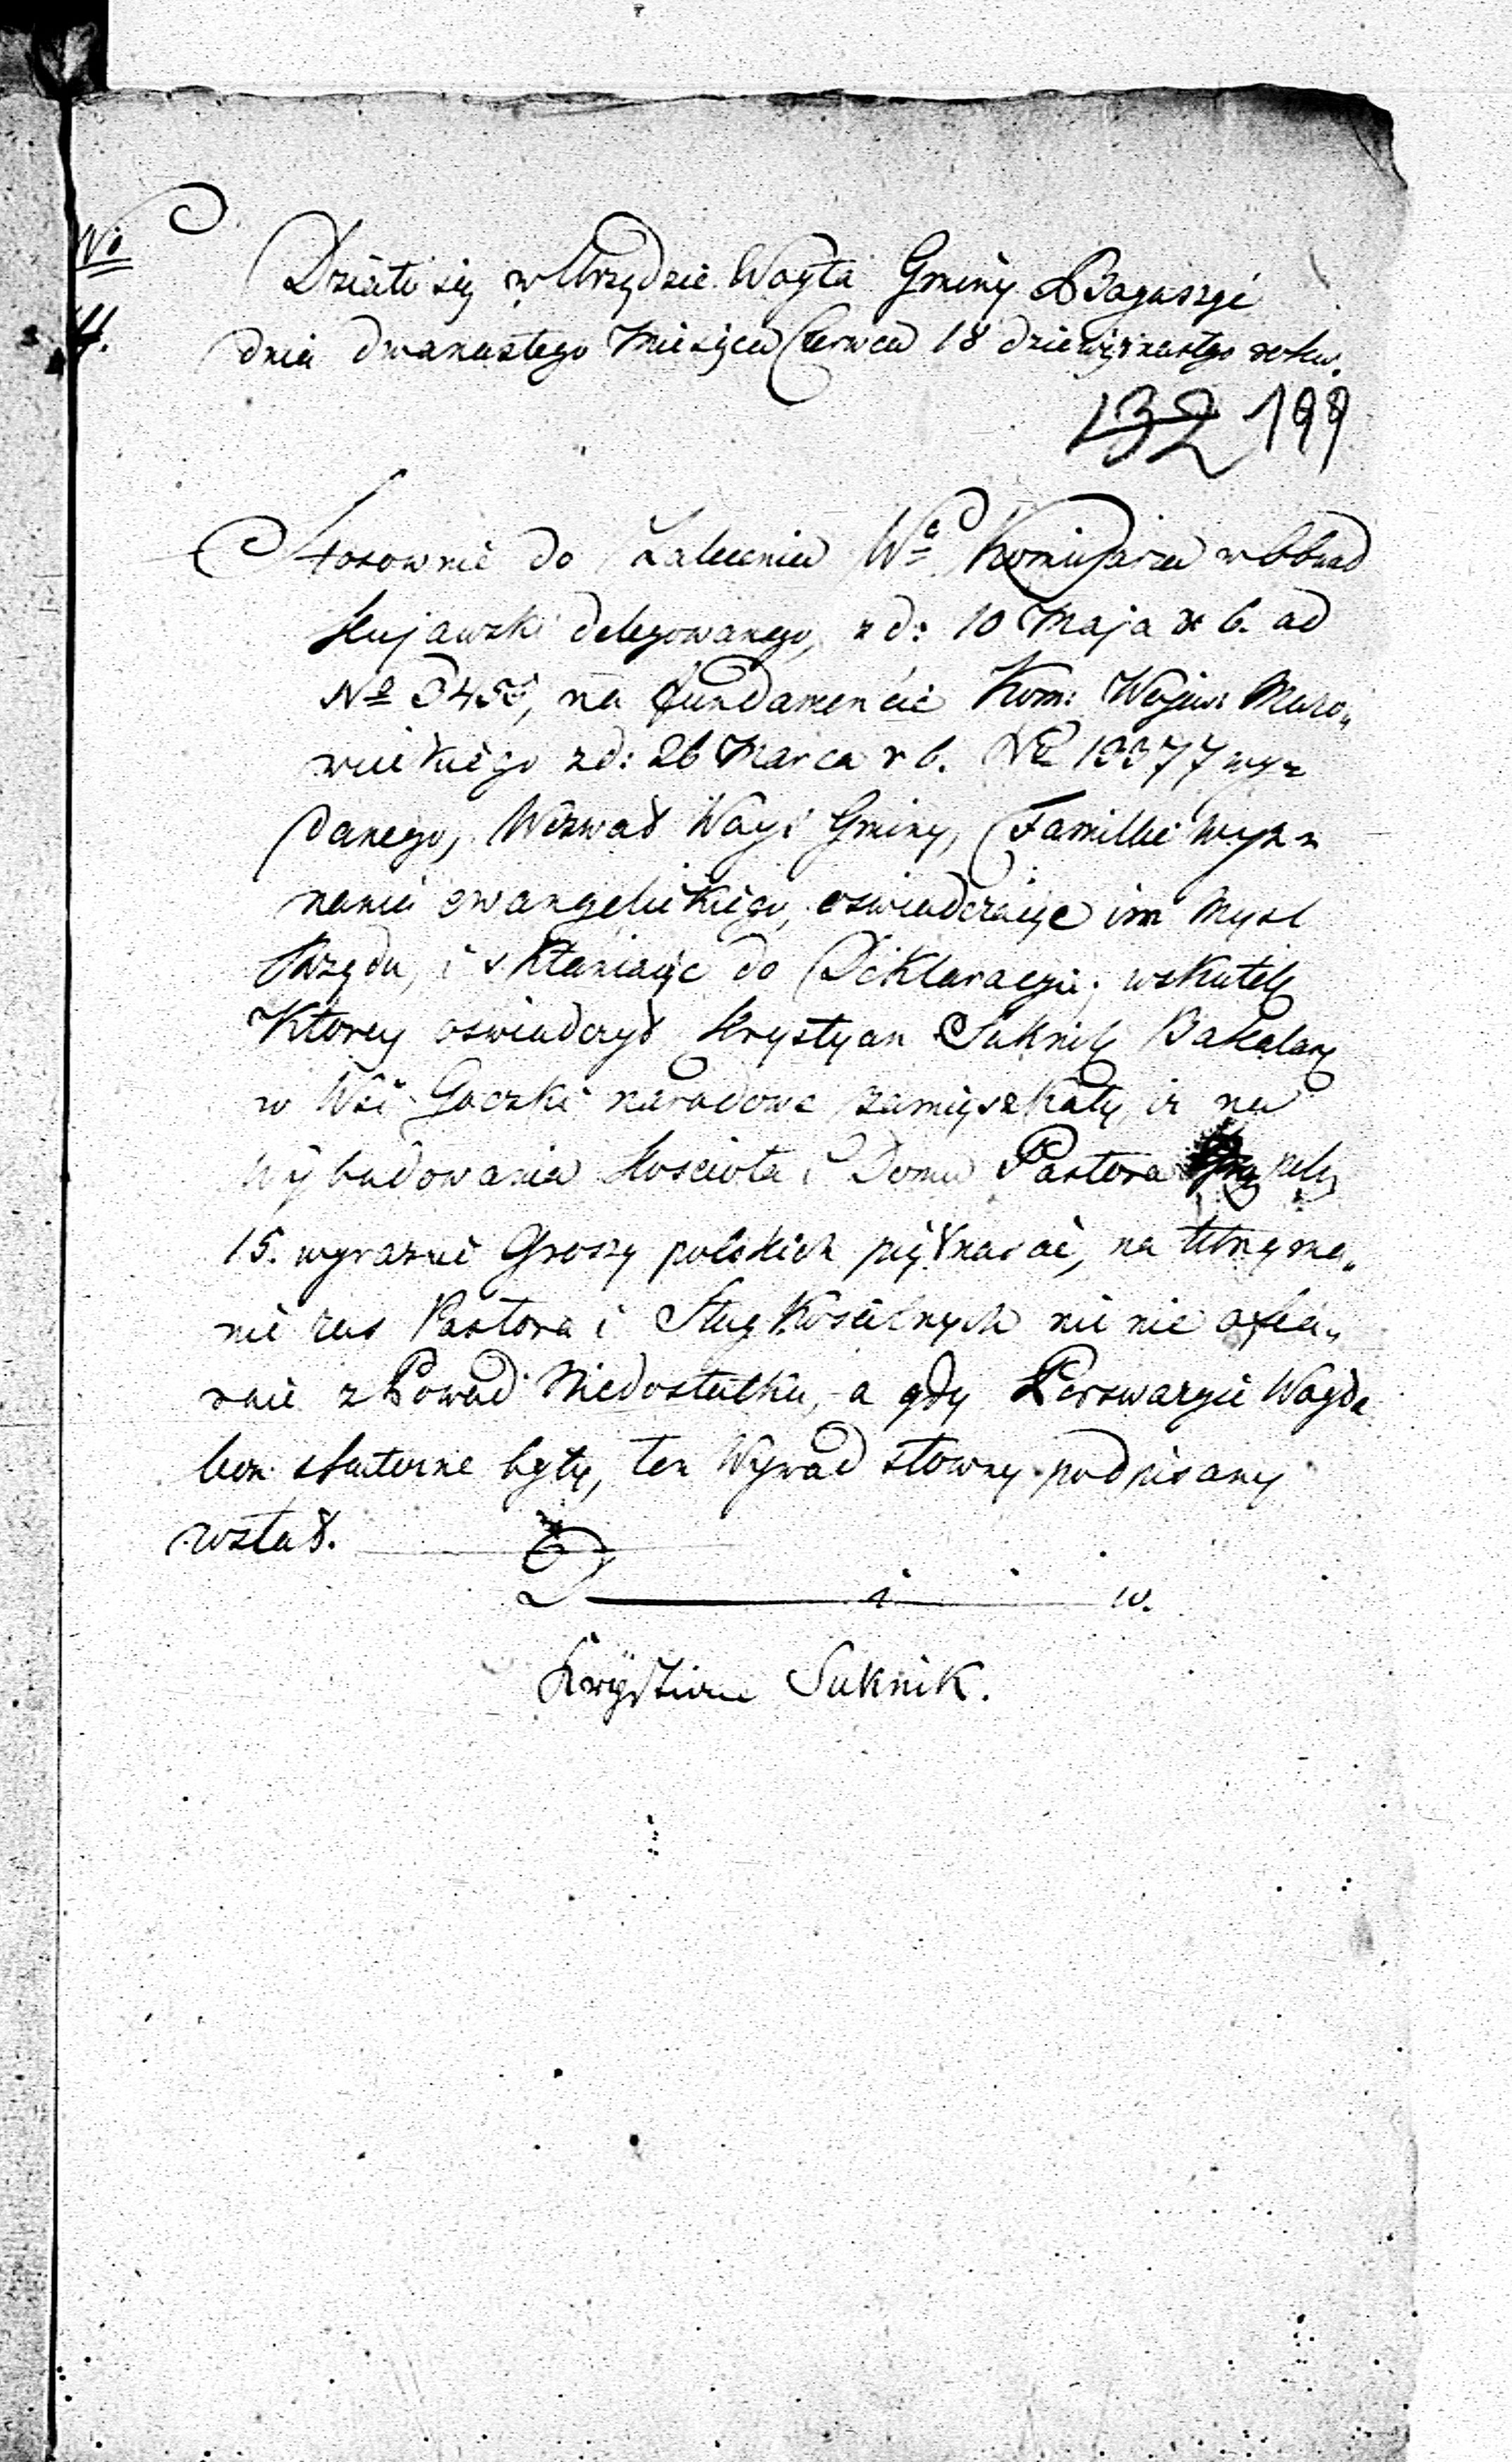 No
4.
Działo się w Urzędzie Woyta Gminy
dnia dwunastego Miesiąca Czerwca 18 dziewiętnastego roku.
132 199
Stosownie do Zalecenia We Kommissarza w Obwód
Kujawski delegowanego, z d: 10 Maja r b. ad
No na fundamencie Kom: Wojew: Mazo„
wieckiego z d: 26 Marca r b. No 13377 wy„
danego, Wezwał Woyt Gminy, Famillie wyz„
nania ewangelickiego, oswiadczaiąc im mysl
Rządu, i skłaniaiąc do Deklaracyi; wskutek
Ktorey oswiadczył Krystyan Suknik Bakalarz
w Wsi zamięszkały, iż na
Wybudowania Koscioła i Domu Pastora
15. wyraznie Groszy polskich piętnascie, na Utrzyma„
nie zas Pastora i Sług Koscielnych nic nie ofia„
ruie z Powod Niedostatku, a gdy Perswazyie Woyta
bez skuteczne były, ten Wywod słowny podpisany
został.
D i w.
Krystian Suknik.